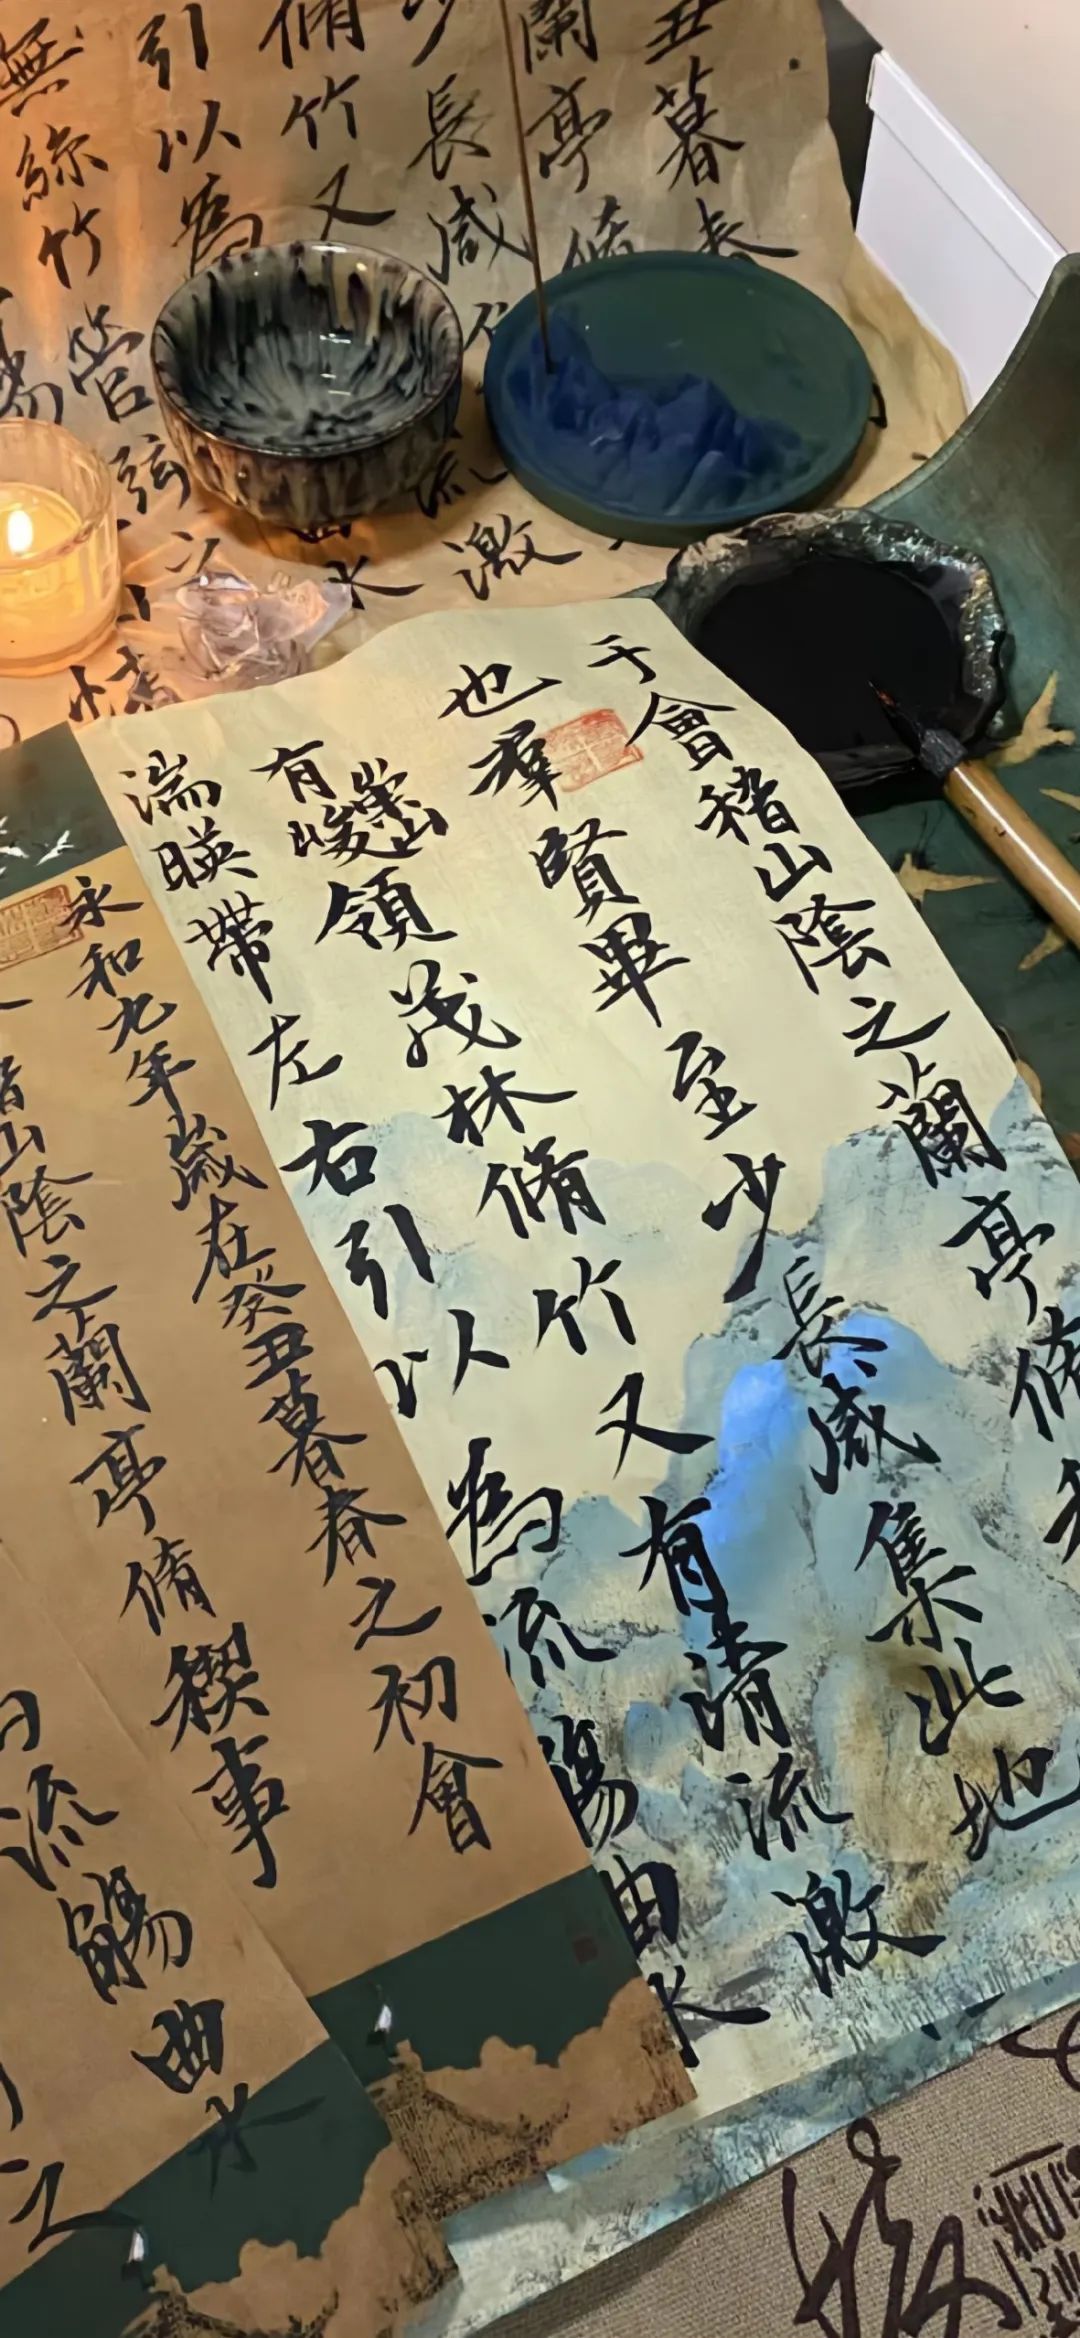 丑暮春
蘭亭脩
少長咸
脩竹又流激
引以為水
無絲竹管弦之
情
于會稽山陰之蘭亭脩
也羣賢畢至少長咸集此地
有崇山峻領茂林脩竹又有清流激
湍暎帶左右引以為流觴曲水
永和九年歲在癸丑暮春之初會
稽山陰之蘭亭脩禊事
流觴曲水
之